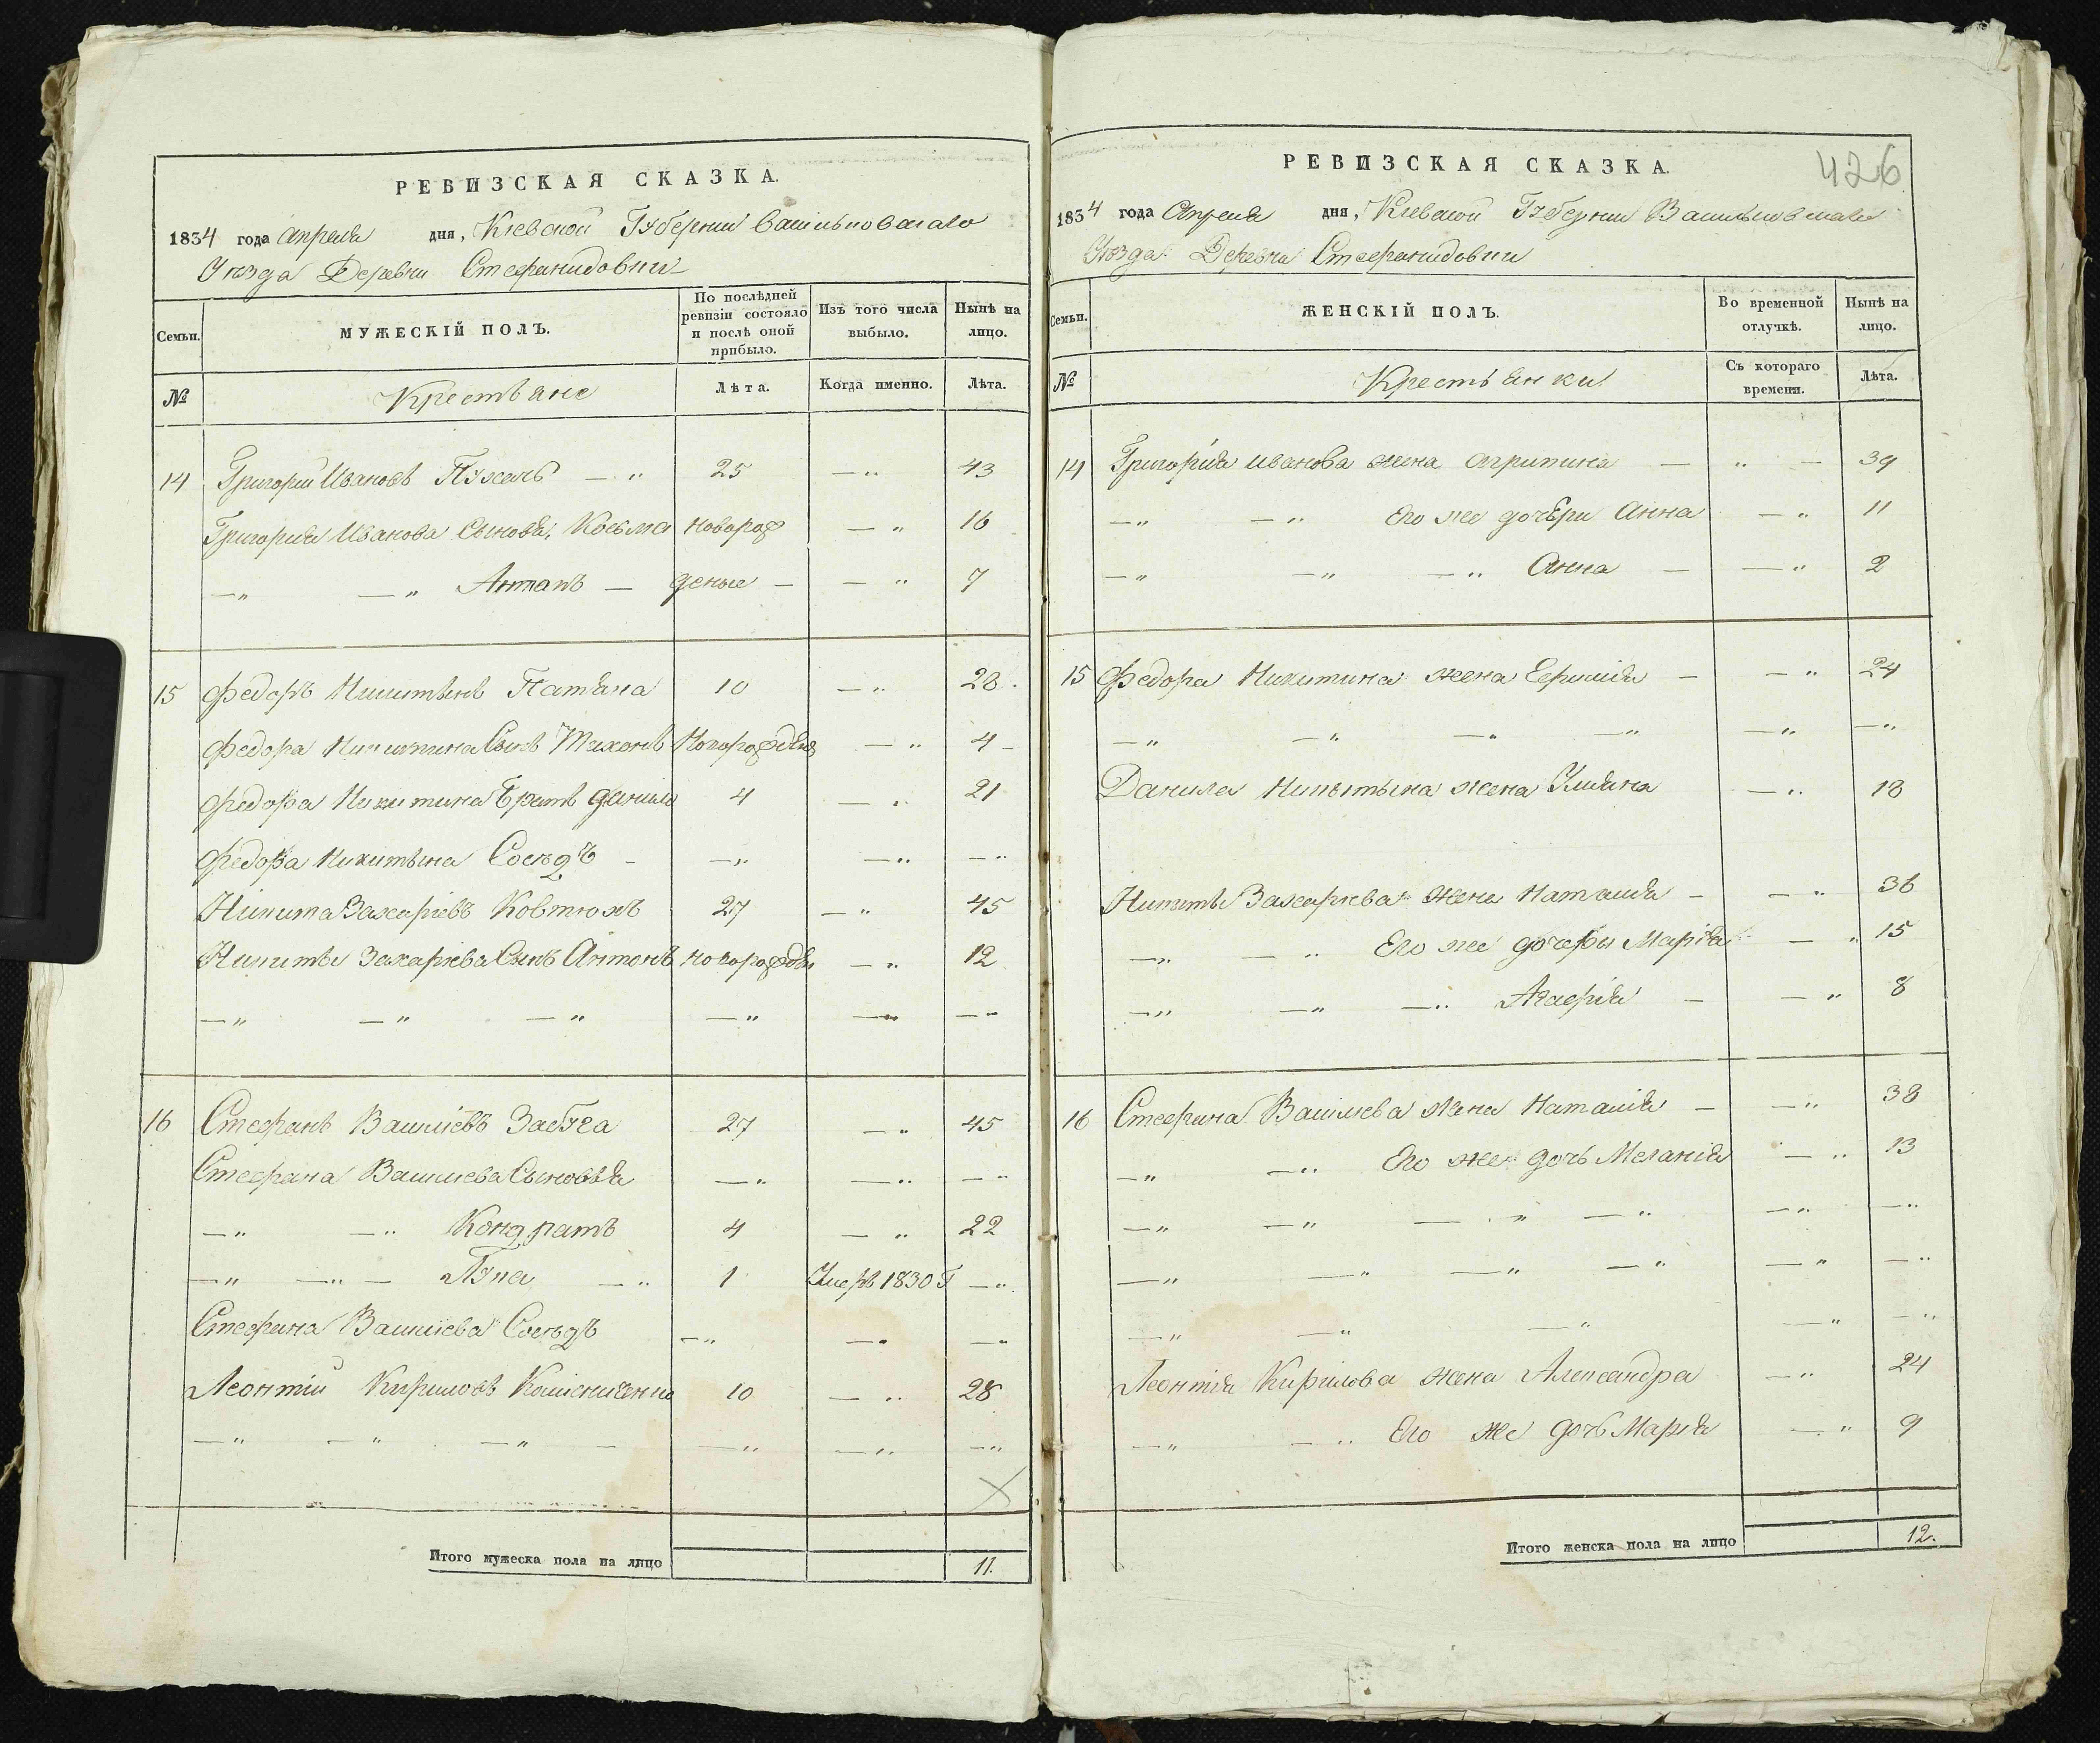 РЕВИЗСКАЯ СКАЗКА.
1834 года Апреля дня, Кіевской Губерніи Васильковскаго
Уѣзда Деревни Стефанидовки
Семьи. МУЖЕСКІЙ ПОЛЪ. По послѣдней ревизіи состояло и послѣ оной прибыло. Изъ того числа выбыло. Нынѣ на лицо.
№ Крестьяне Лѣта. Когда именно. Лѣта.
14 Григорій Ивановъ — „ 25 — „ 43
Григорія Иванова Сыновья, Козьма новорож — „ 16
— „ — „ Антонъ — деные — — „ 7
15 Федоръ Никитинъ 10 — „ 28.
Федора Никитина Сынъ Тихонъ Новорожден — „ 4 —
Федора Никитина Братъ Данило 4 — „ 21
Федора Никитына Сосѣдъ — — „ — „ — „
Никита Захаріевъ Ковтюхъ 27 — „ 45
Никиты Захаріева Сынъ Антонъ новорожден — „ 12
— „ — „ — „ — „ — „ — „
16 Стефанъ Василіевъ 27 — „ 45
Стефана Василіева Сыновья — „ — „ — „
— „ — „ Кондратъ 4 — „ 22
— „ — „ — Лука — „ 1 Умеръ 1830 Г — „
Стефана Василіева Сосѣдъ — „ — „ — „
Леонтій Кириловъ 10 — „ 28
— „ — „ — „ — — „ — „ — „
Итого мужеска пола на лицо 11.
426
РЕВИЗСКАЯ СКАЗКА.
1834 года Апреля дня, Кіевской Губерніи Васильковскаго
Уѣзда Деревни Стефанидовки
Семьи. ЖЕНСКІЙ ПОЛЪ. Во временной отлучкѣ. Нынѣ на лицо.
№ Крестьянки Съ котораго времени. Лѣта.
14 Григорія Иванова жена Агрипина — „ — 39
— „ — „ Его же дочери Анна — „ 11
— „ — „ — „ Анна — — „ 2
15 Федора Никитина жена — — „ 24
— „ — „ — „ — „ — „ — „
Данила Никитына жена Уліяна — „ 18
Никиты Захаріева жена Наталія — — „ 36
— „ — „ Его же дочеры Марія — „ 15
— „ — „ — „ Агафія — — „ 8
16 Стефана Василіева жена Наталія — — „ 38
— „ — „ Его же дочь Меланія — „ 13
— „ — „ — „ — „ — „ — „
— „ — „ — „ — „ — „ — „
— „ — „ — „ — „ — „
Леонтія Кирилова жена Александра — „ 24
— „ — „ Его же дочь Марія — „ 9
Итого женска пола на лицо 12.